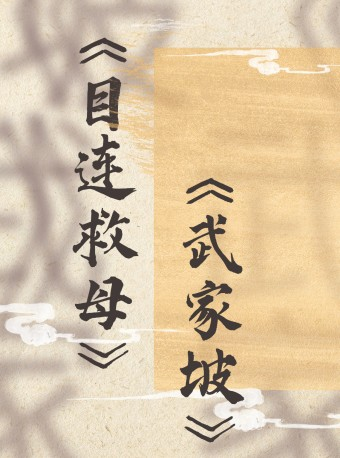 《武家坡》
《目连救母》